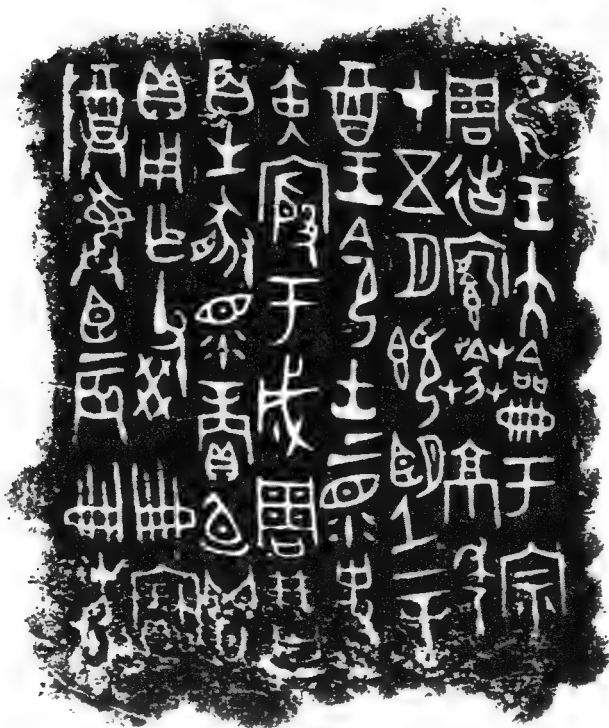 隹王大龠于宗
周徣京年
才五月既望辛
酉王令士上眔史
寅殷于成周
百生豚眔賞卣鬯
貝用乍父癸寶
尊彝臣辰冊